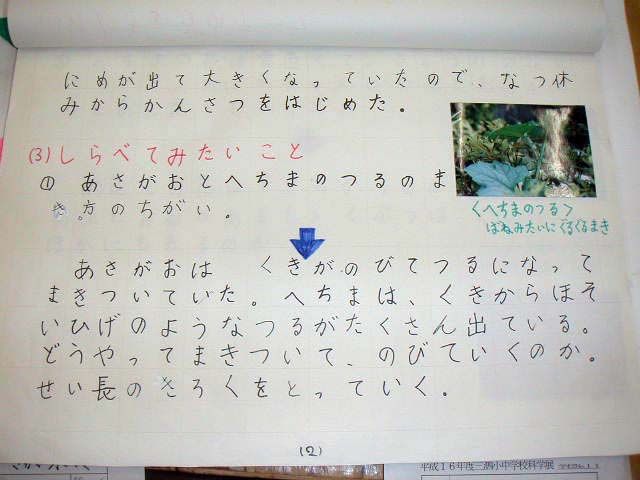 にめが出て大きくなっていたので、なつ休
みからかんさつをはじめた。
(3)しらべてみたいこと
① あさがおとへちまのつるのま
き方のちがい。
<へちまのつる>
ばねみたいにぐるぐるまき
あさがおは くきがのびてつるになって
まきついていた。へちまは、くきからほそ
いひげのようなつるがたくさん出ている。
どうやってまきついて、のびていくのか。
せい長のきろくをとっていく。
(2)
平成16年度三調小中学校科学展